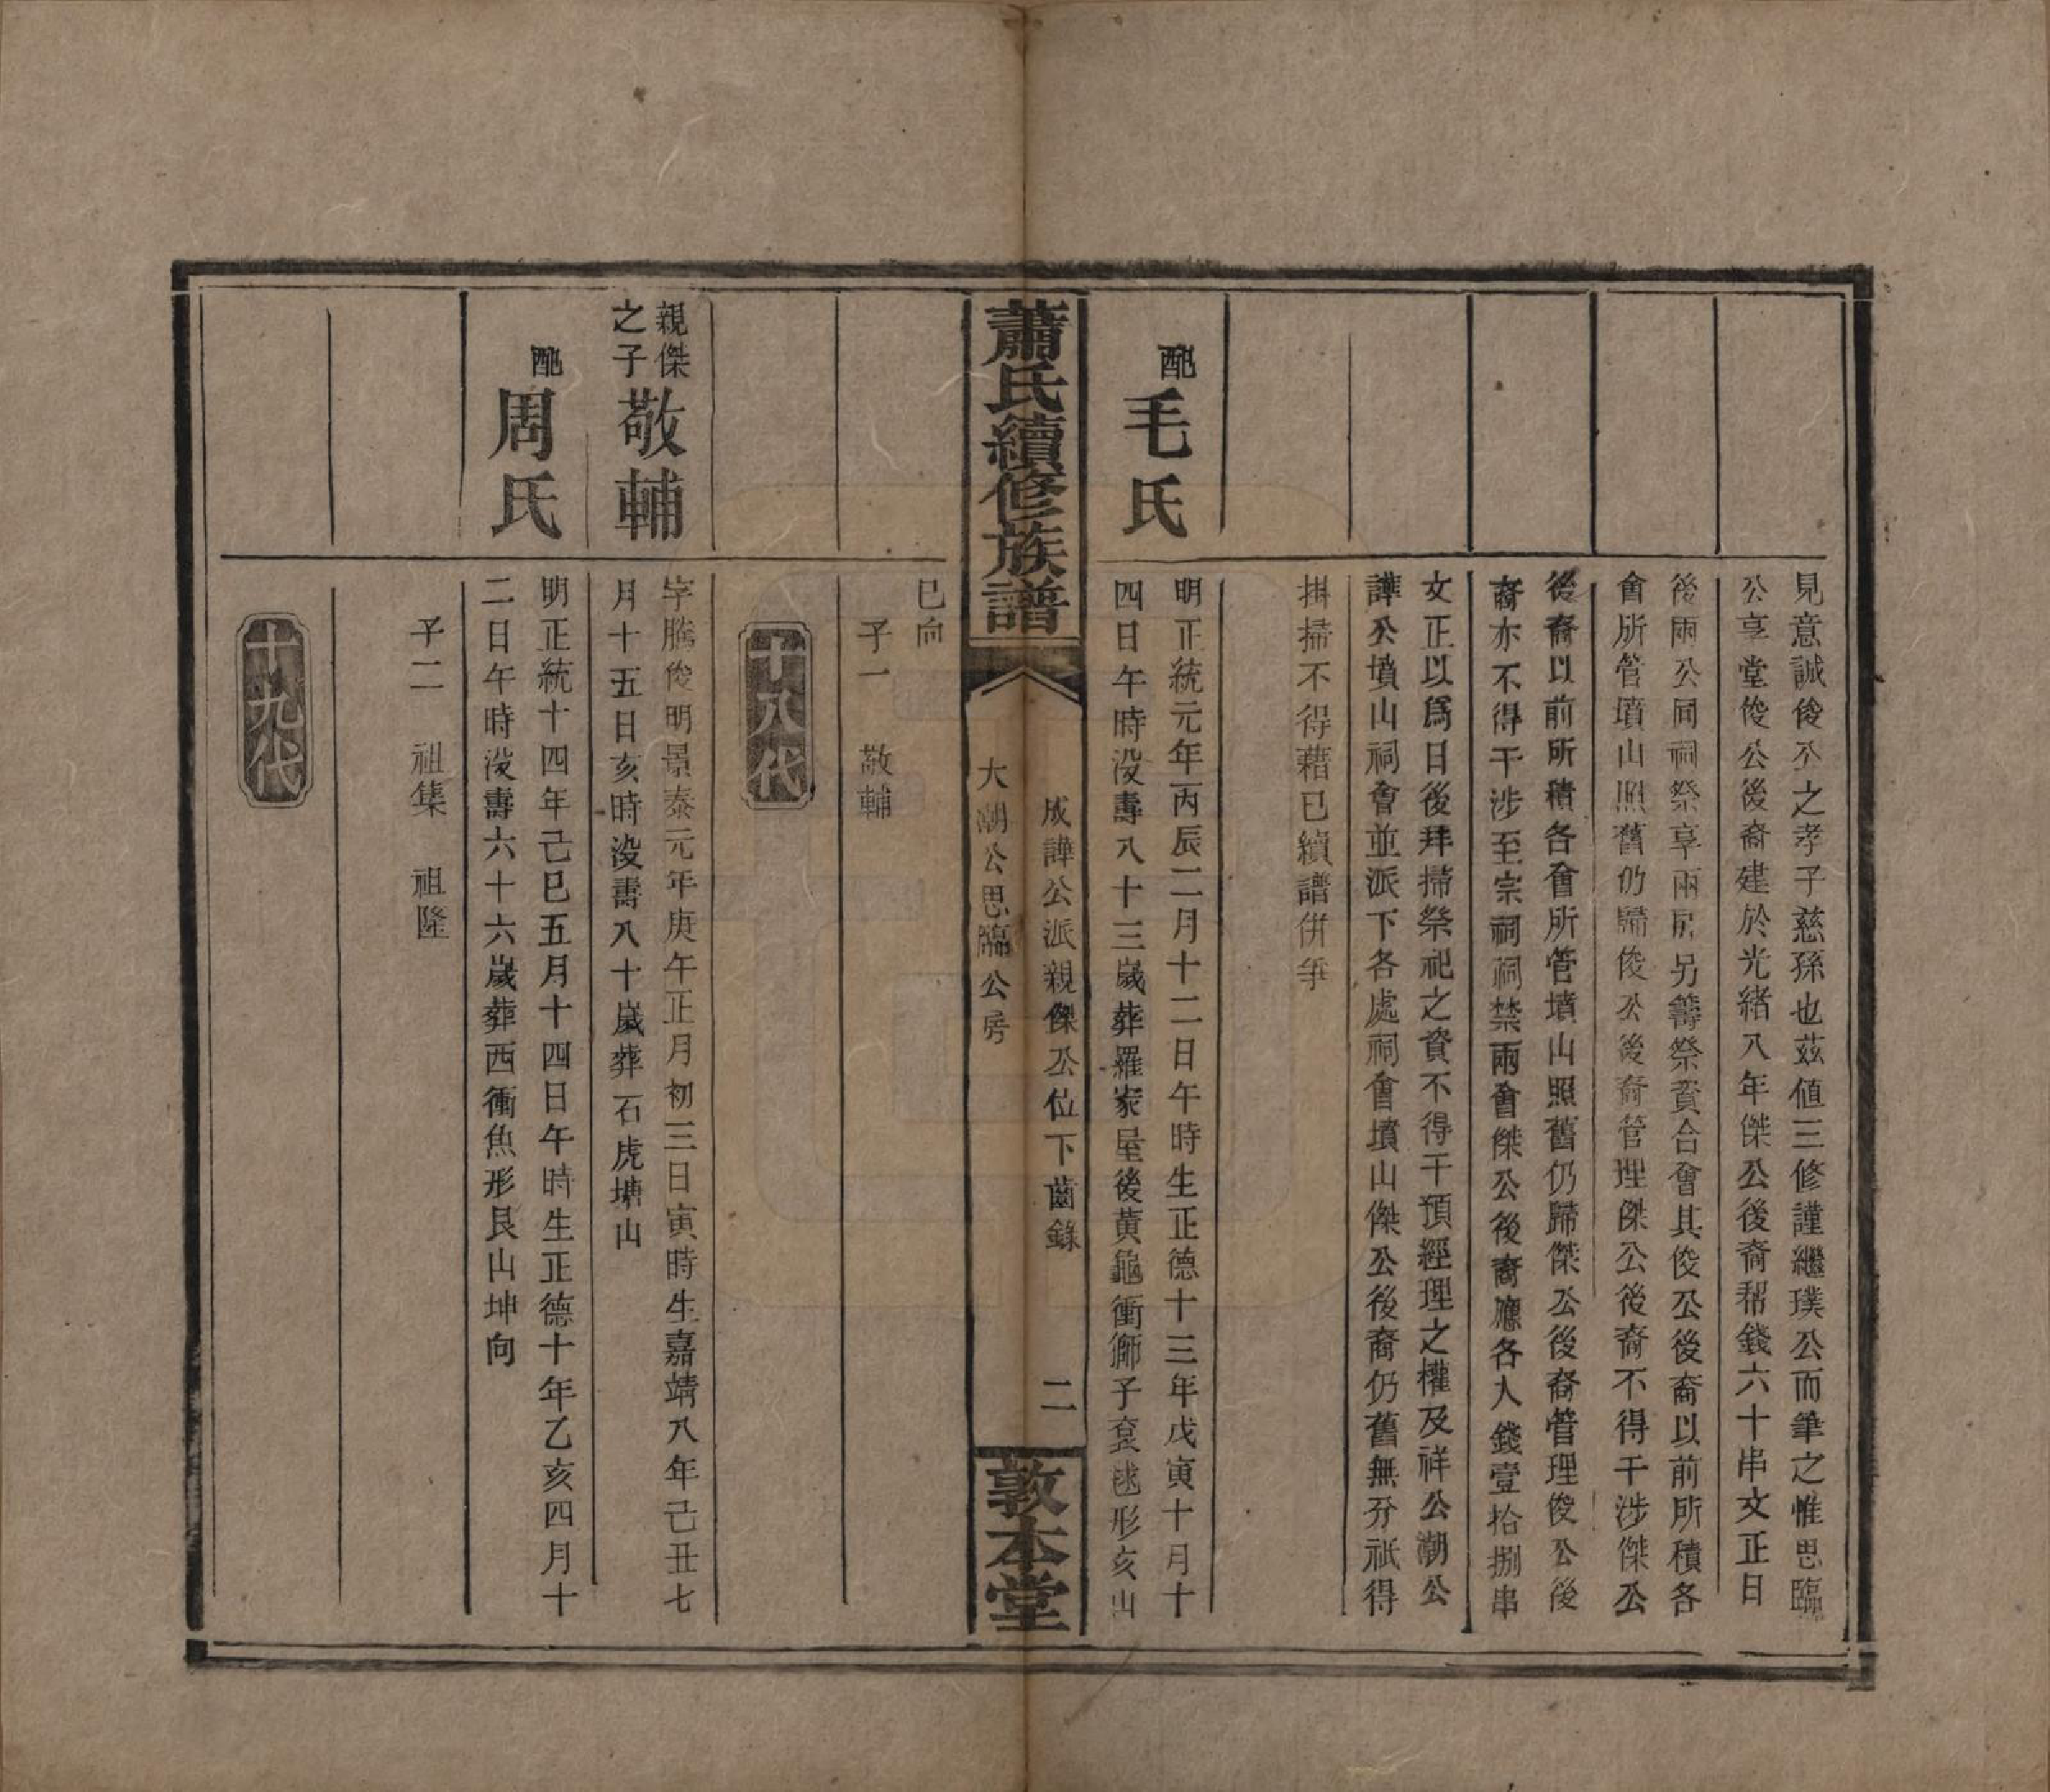 見意誠後公之孝子慈孫也茲値三修謹繼璞公而筆之惟思臨
公享堂俊公後裔建於光緒八年傑公後裔帮錢六十串文正日
後兩公同祠祭享兩房另籌祭資合會其俊公後裔以前所積各
會所管墳山照舊仍歸俊公後裔管理傑公後裔不得干涉傑公
後裔以前所積各會所管墳山照舊仍歸傑公後裔管理俊公後
裔亦不得干涉至宗祠祠禁兩會傑公後裔應各入錢壹拾捌串
文正以爲日後拜掃祭祀之資不得干預經理之權及祥公潮公
譁公墳山祠會並派下各處祠會墳山傑公後裔仍舊無分祇得
掛掃不得藉已續譜倂爭
配
毛氏
明正統元年丙辰二月十二日午時生正德十三年戊寅十月十
四日午時没壽八十三歲葬羅家屋後黃龜衝獅子毬形亥山
蕭氏續修族譜
成譁公派親傑公位下齒錄 二
大潮公思臨公房
敦本堂
巳向
子一 敬輔
十八代
親傑
之子
敬輔
字騰俊明景泰元年庚午正月初三日寅時生嘉靖八年己丑七
月十五日亥時没壽八十歲葬石虎塘山
配
周氏
明正統十四年己巳五月十四日午時生正德十年乙亥四月十
二日午時没壽六十六歲葬西衝魚形艮山坤向
子二 祖集 祖隆
十九代